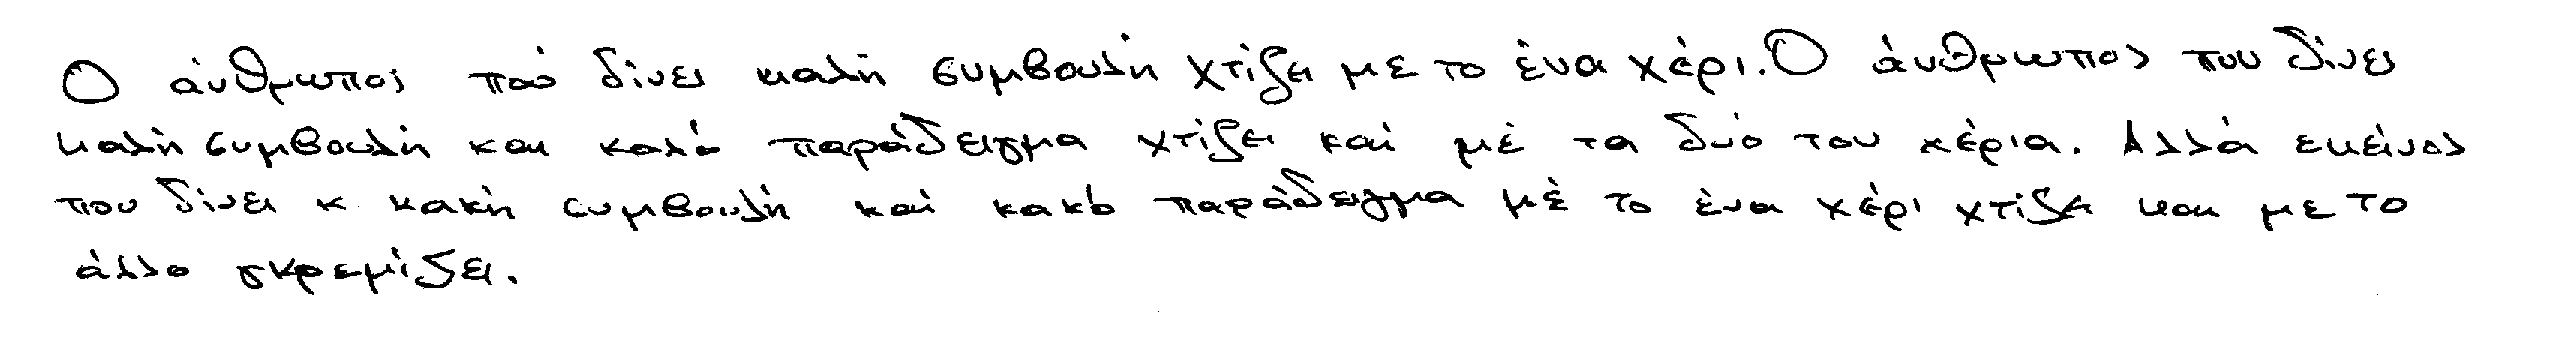 Ο άνθρωπος πού δίνει καλή συμβουλή χτίζει με το ένα χέρι. Ο άνθρωπος που δίνει
καλή συμβουλή και καλό παράδειγμα χτίζει καί μέ τα δυό του χέρια. Αλλά εκείνος
που δίνει κ κακή συμβουλή καί κακό παράδειγμα μέ το ένα χέρι χτίζει και με το
άλλο γκρεμίζει.